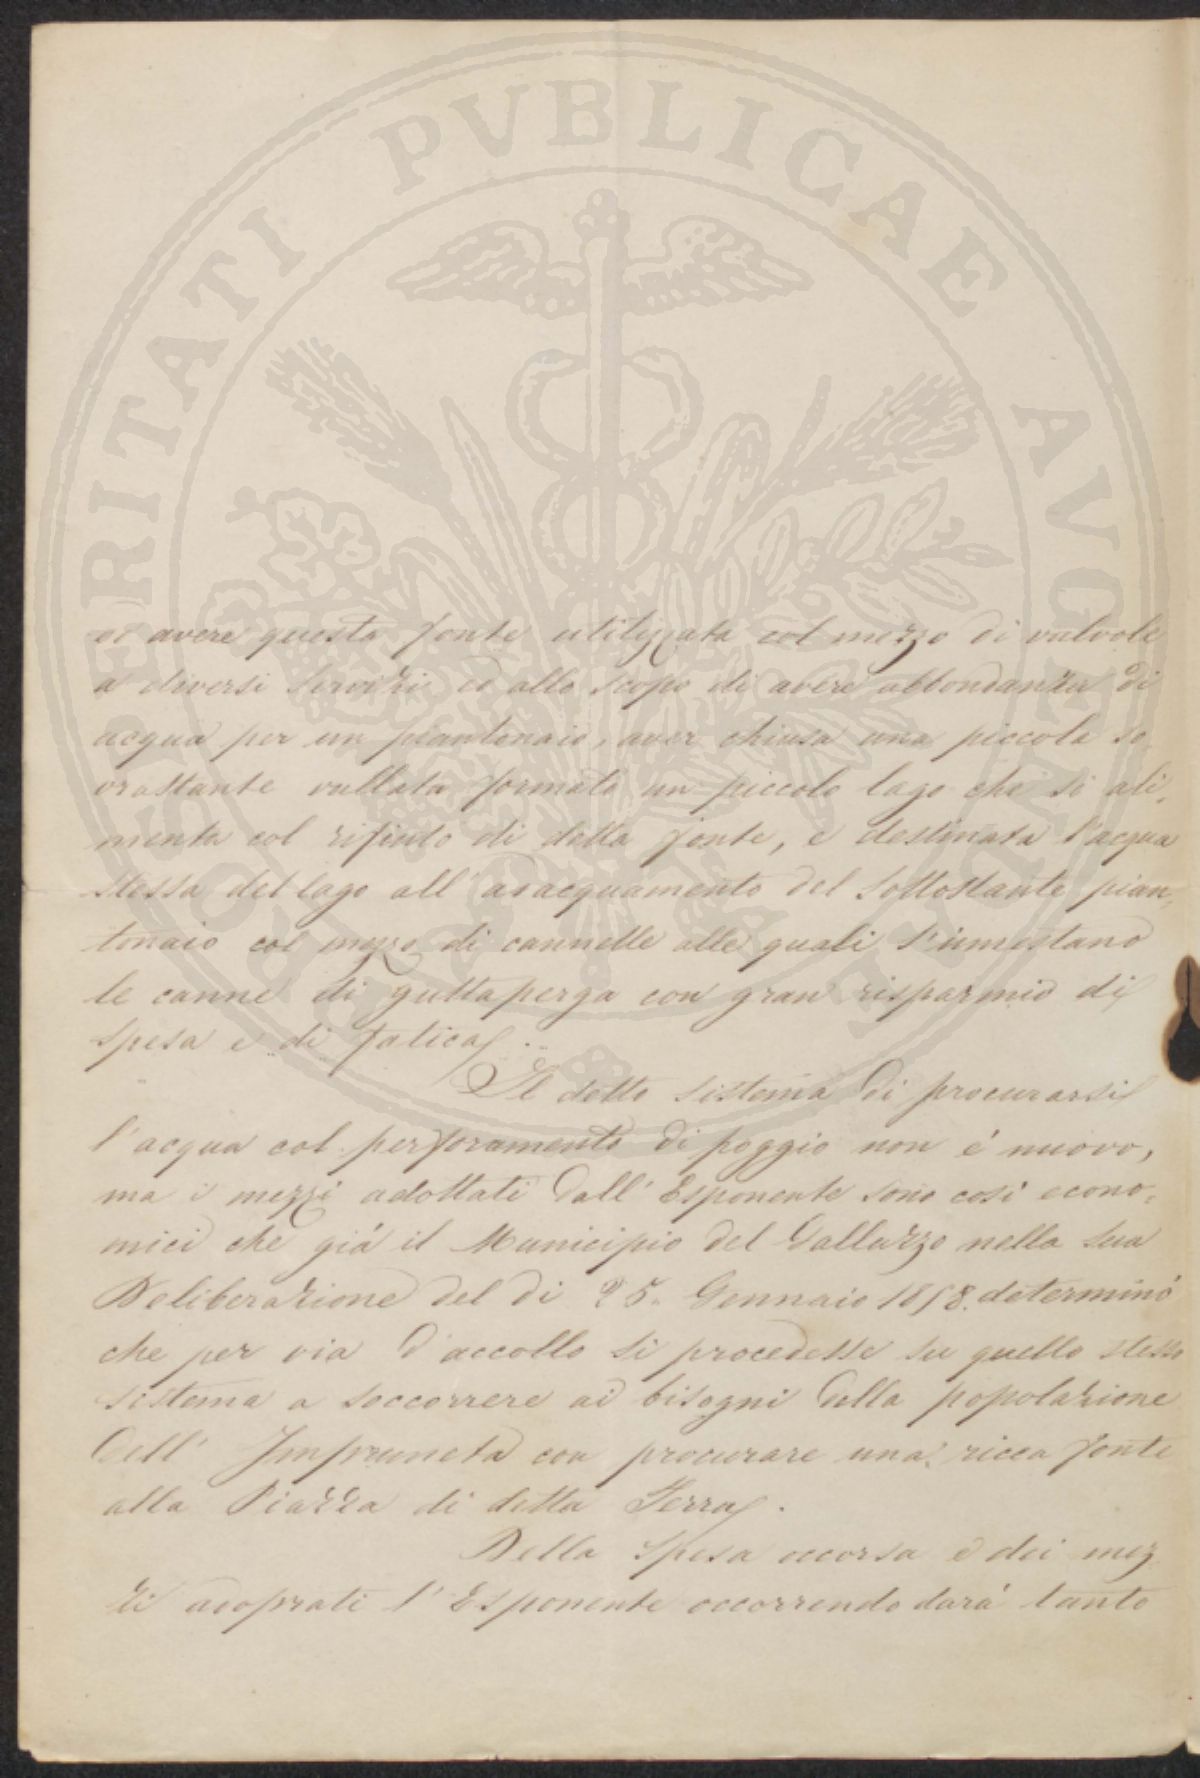 PROSPERITATI PVBLICAE AVGENDAE
ed avere questa fonte utilizzata col mezzo di valvole
a diversi servizi ed allo scopo di avere abbondanza di
acqua per un piantonaio, aver chiusa una piccola so
vrastante vallata formato un piccolo lago che si ali,
menta col rifiuto di detta fonte, e destinata l'acqua
stessa del lago all'anacquamento del sottostante pian,
tonaio col mezzo di cannelle alle quali s'innestano
le canne di guttaperga con gran risparmio di
spesa e di fatica.
Il detto sistema di procurarsi
l'acqua col perforamento di poggio non é nuovo,
ma i mezzi adottati dall'Esponente sono cosi econo,
mici che giá il Municipio del Galluzzo nella sua
Deliberazione del di 25. Gennaio 1858. determinó
che per via d'accollo si procedesse su quello stesso
sistema a soccorrere ai bisogni della popolazione
dell'Impruneta con procurare una ricca fonte
alla Piazza di detta Terra.
Della spesa occorsa e dei mez
zi adoprati l'Esponente occorrendo dará tanto